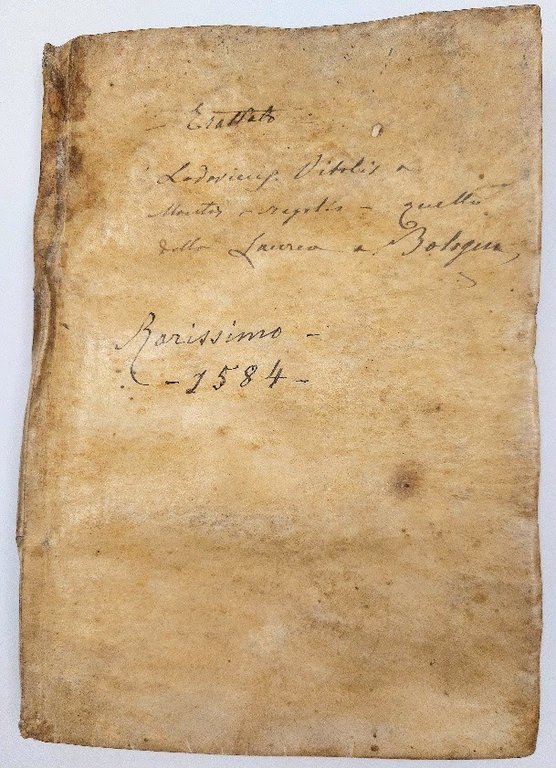 - Trattato -
Lodovicus Vitalis a
Monte regalis - quello
della Laurea a Bologna
Rarissimo -
- 1584 -